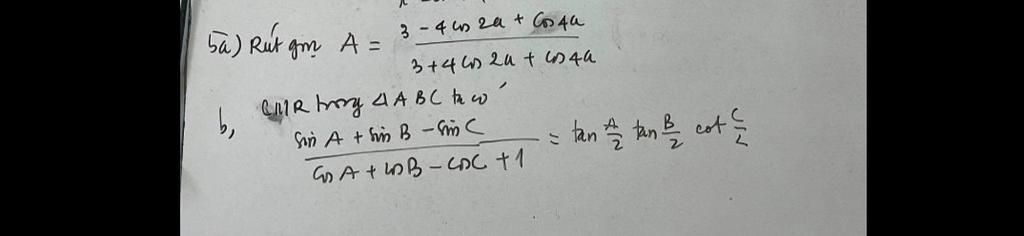 5a) Rút gọn A = (3 - 4 cos 2a + cos 4a) / (3 + 4 cos 2a + cos 4a)
b, CMR trong ΔABC ta có
(sin A + sin B - sin C) / (cos A + cos B - cos C + 1) = tan A/2 tan B/2 cot C/2